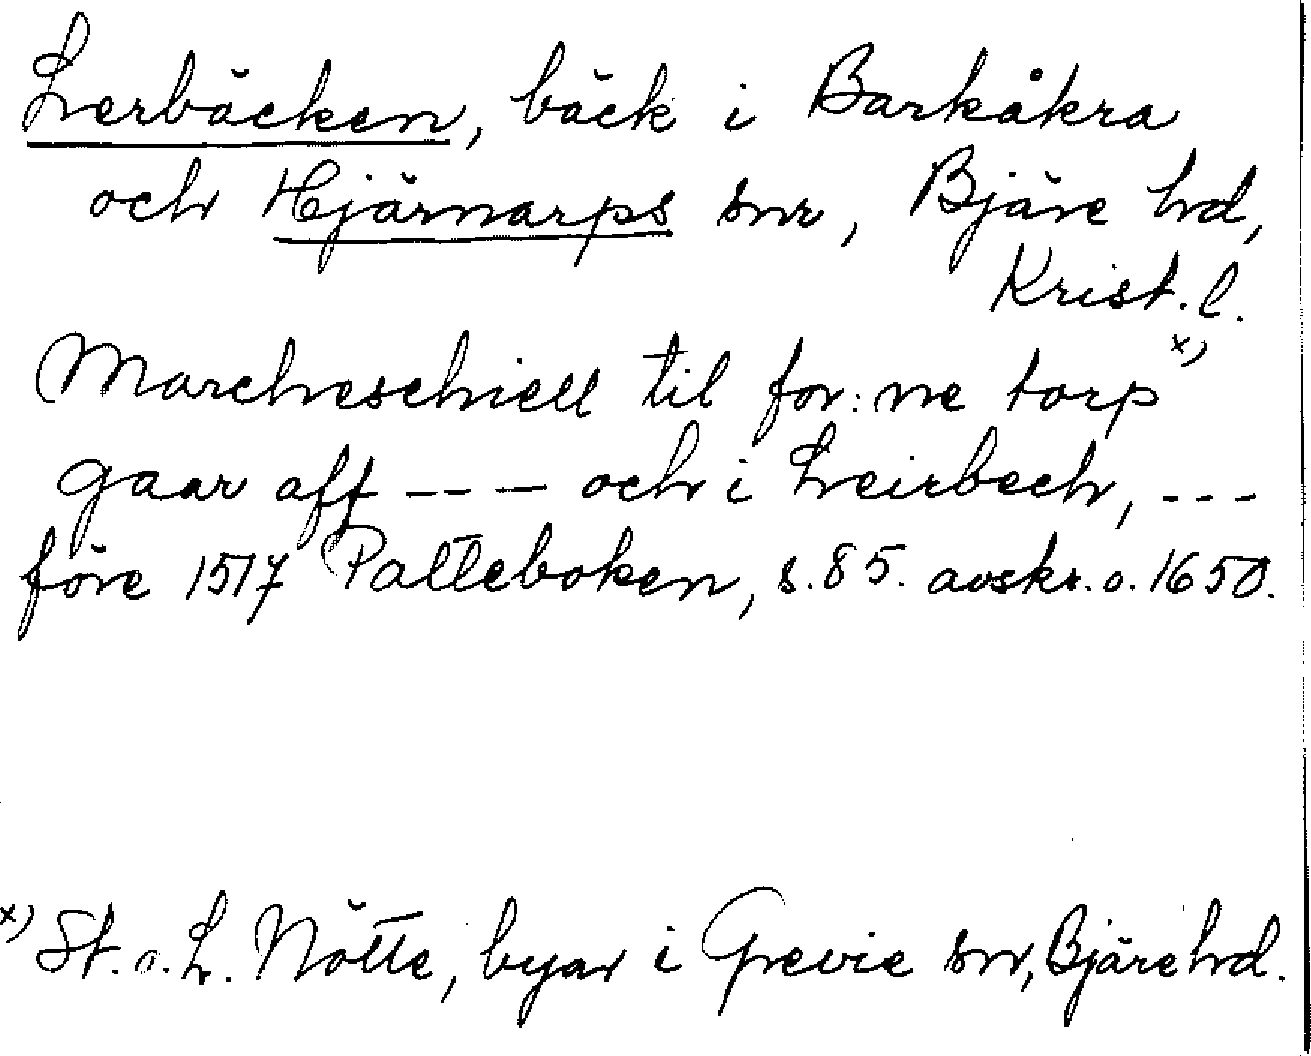 Lerbäcken, bäck i Barkåkra
och Hjärnarps snr, Bjäre hd,
Krist. l.
Marcheschiell til for:ne torp x)
gaar aff --- och i Leirbech, ---
före 1517 Palteboken, s. 85. avskr. o. 1650.
x) St. o. L. Nötte, byar i Grevie sn, Bjäre hd.